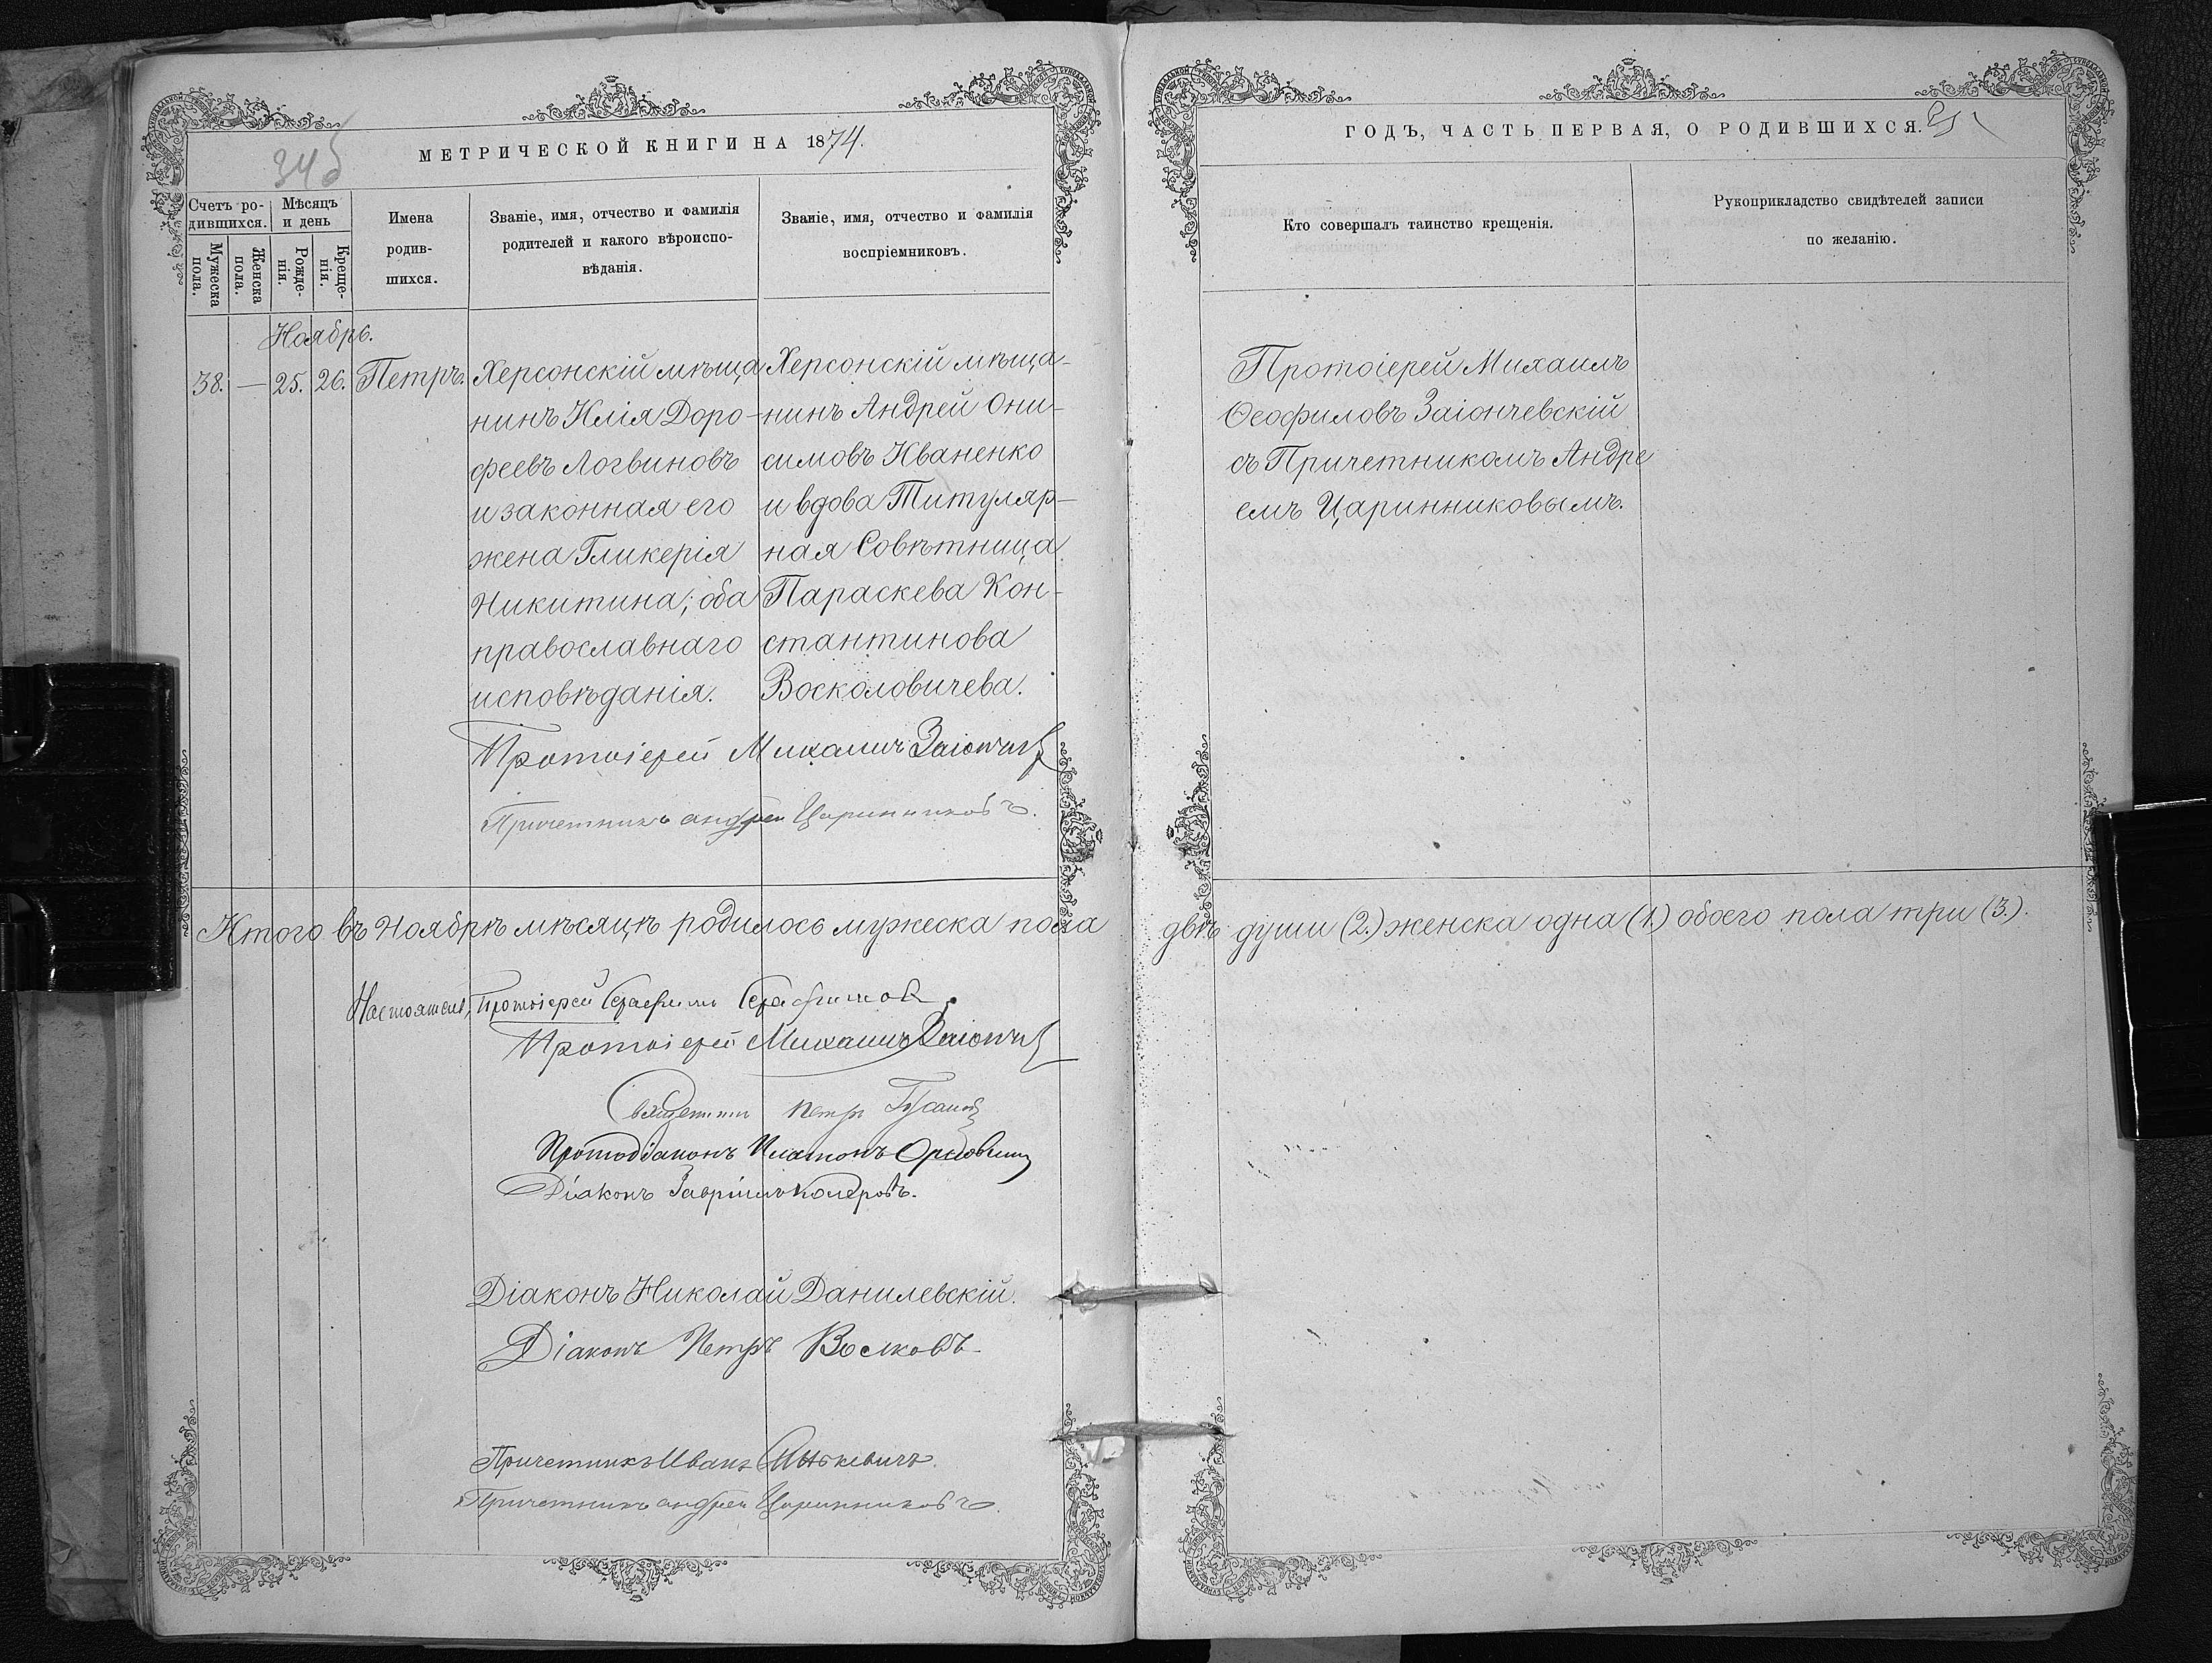 МЕТРИЧЕСКОЙ КНИГИ НА 1874.
Счетъ родившихся.
Мѣсяцъ и день
Мужеска пола.
Женска пола.
Рожденія.
Крещенія.
Имена
родив-
шихся.
Званіе, имя, отчество и фамилія
родителей и какого вѣроиспо-
вѣданія.
Званіе, имя, отчество и фамилія
воспріемниковъ.
Ноябрь.
38. — 25. 26. Петръ.
Херсонскій мѣща
нинъ Илія Доро-
феевъ Логвиновъ
и законная его
жена Гликерія
Никитина; оба
православнаго
исповѣданія.
Херсонскій мѣща-
нинъ Андрей Они-
симовъ Иваненко
и вдова Титуляр-
ная Совѣтница
Параскева Кон-
стантинова
Восколовичева.
Протоіерей Михаилъ
Причетникъ андрей Царинниковъ.
ГОДЪ, ЧАСТЬ ПЕРВАЯ, О РОДИВШИХСЯ.
Кто совершалъ таинство крещенія.
Рукоприкладство свидѣтелей записи
по желанію.
Протоіерей Михаилъ
Ѳеофиловъ Заіончевскій
съ Причетникомъ Андре
емъ Царинниковымъ.
Итого въ Ноябрѣ мѣсяцѣ родилось мужеска пола двѣ души (2.) женска одна (1.) обоего пола три (3.).
Настоятель, Протоіерей Серафимъ Серафимовъ.
Протоіерей Михаилъ
Священникъ Петръ
Протодіаконъ Платонъ
Діаконъ Гавріилъ
Діаконъ Николай Данилевскій.
Діаконъ Петръ Волковъ.
Причетникъ Иванъ
Причетникъ андрей Царинниковъ.